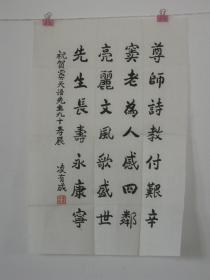 尊師詩教付艱辛
窦老為人感四鄰
亮麗文風歌盛世
先生長壽永康寧
祝賀窦天语先生九十寿辰
凌育成